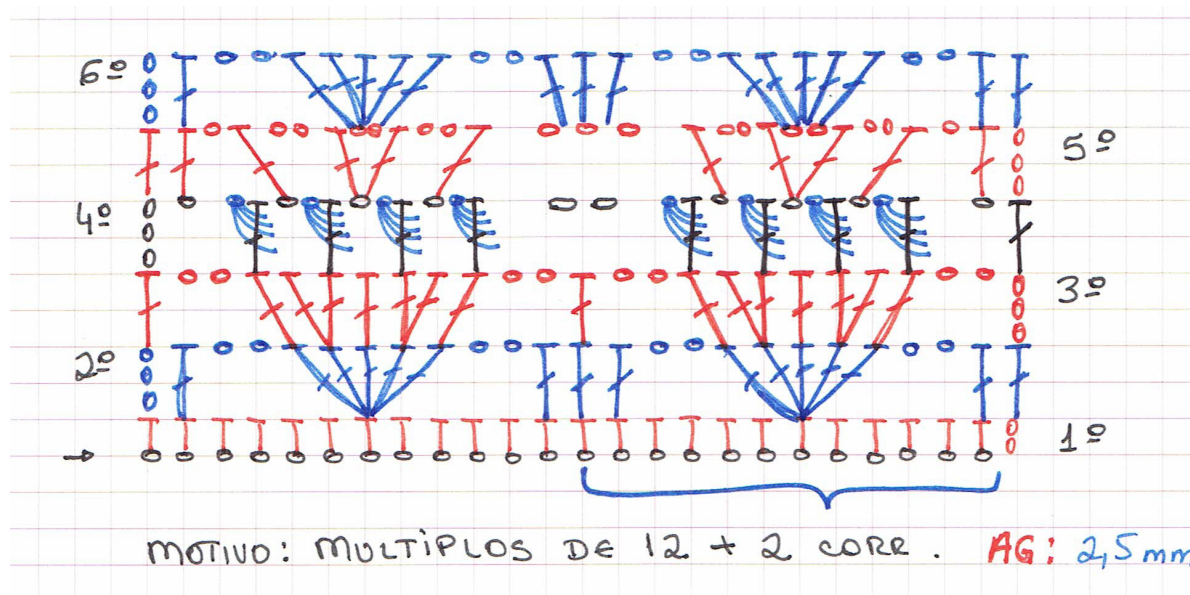 6º
5º
4º
3º
2º
1º
MOTIVO: MULTIPLOS DE 12 + 2 CORR. AG: 2,5mm